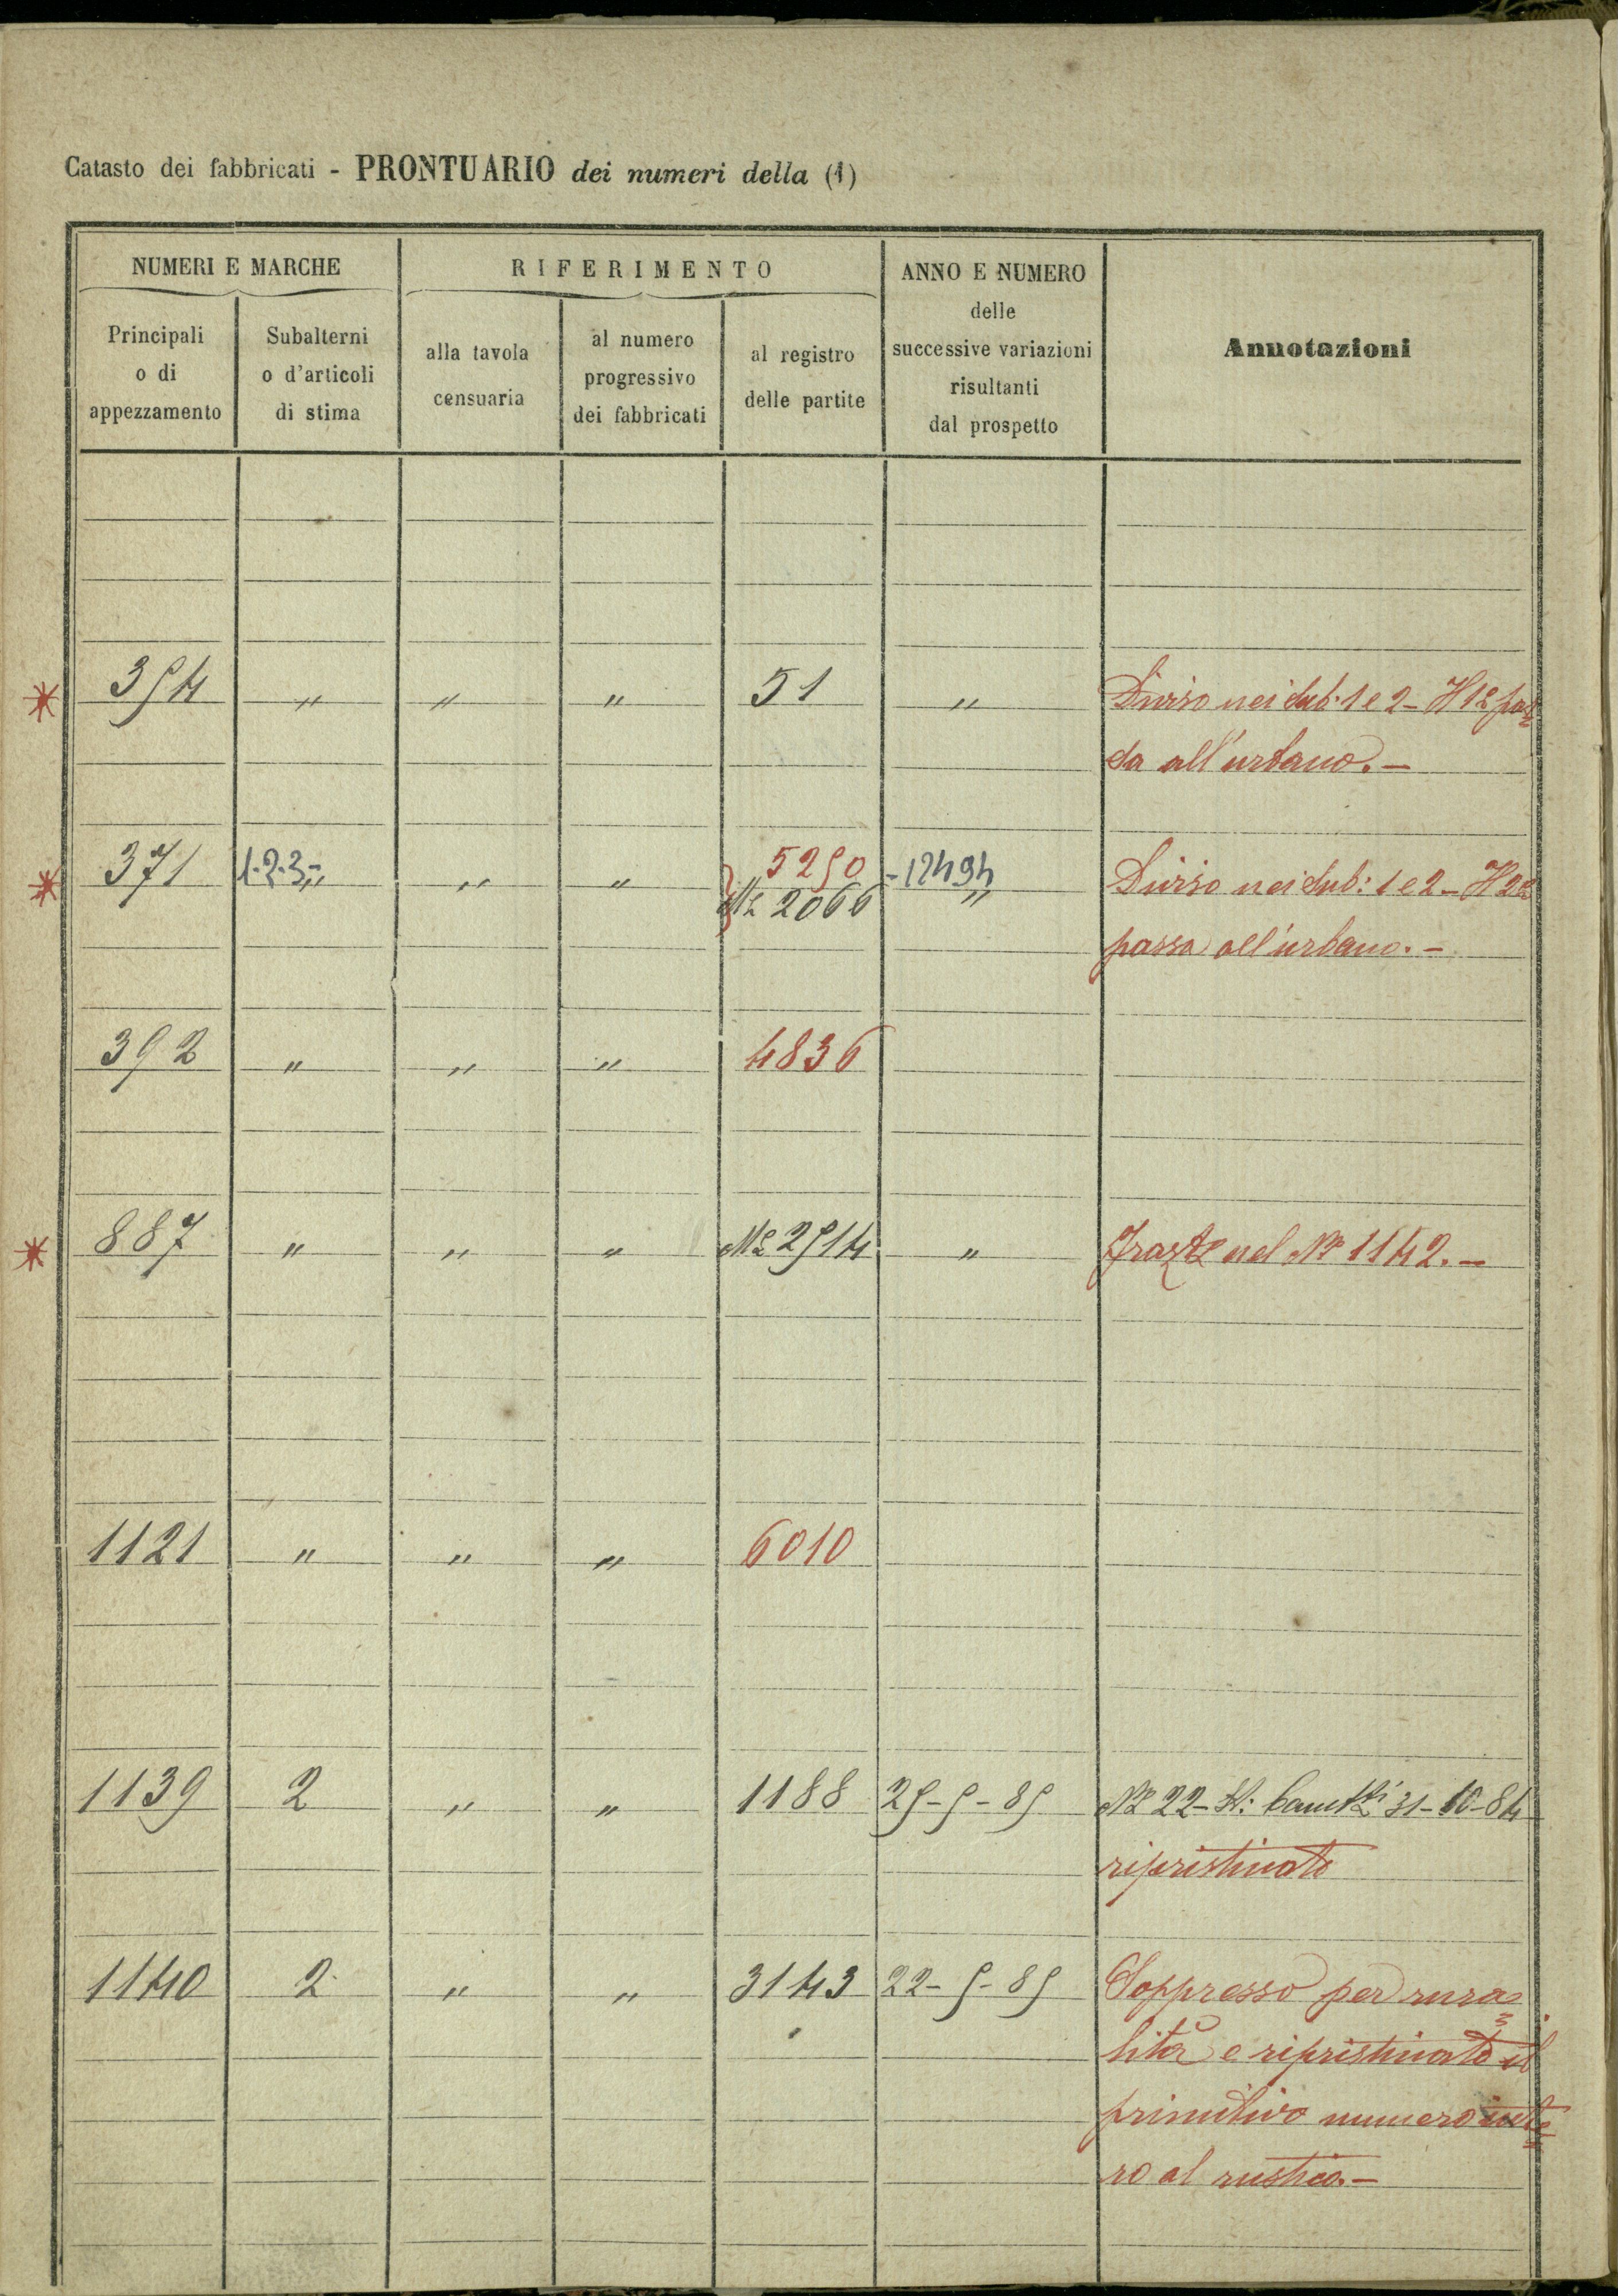 Catasto dei fabbricati - PRONTUARIO dei numeri della (1)
NUMERI E MARCHE
RIFERIMENTO
ANNO E NUMERO
delle
successive variazioni
risultanti
dal prospetto
Annotazioni
Principali
o di
appezzamento
Subalterni
o d'articoli
di stima
alla tavola
censuaria
al numero
progressivo
dei fabbricati
al registro
delle partite
354 " " " 51 " Diviso nei sub: 1 e 2 - Il 1º pas=
sa all'urbano. -
5250
371 1.2.3 - " " " Nº 2066 - 12494 " Diviso nei sub: 1 e 2 - Il 2º
passa all'urbano. -
392 " " " 4836
887 " " " Nº 2514 " nel Nº 1142. -
1121 " " " 6010
1139 2 " " 1188 25-5-85 Nº 22 - 31-10-84
ripristinato
1140 2 " " 3143 22-5-85 Soppresso per rura=
lità e ripristinato il
primitivo numero inte=
ro al rustico. -